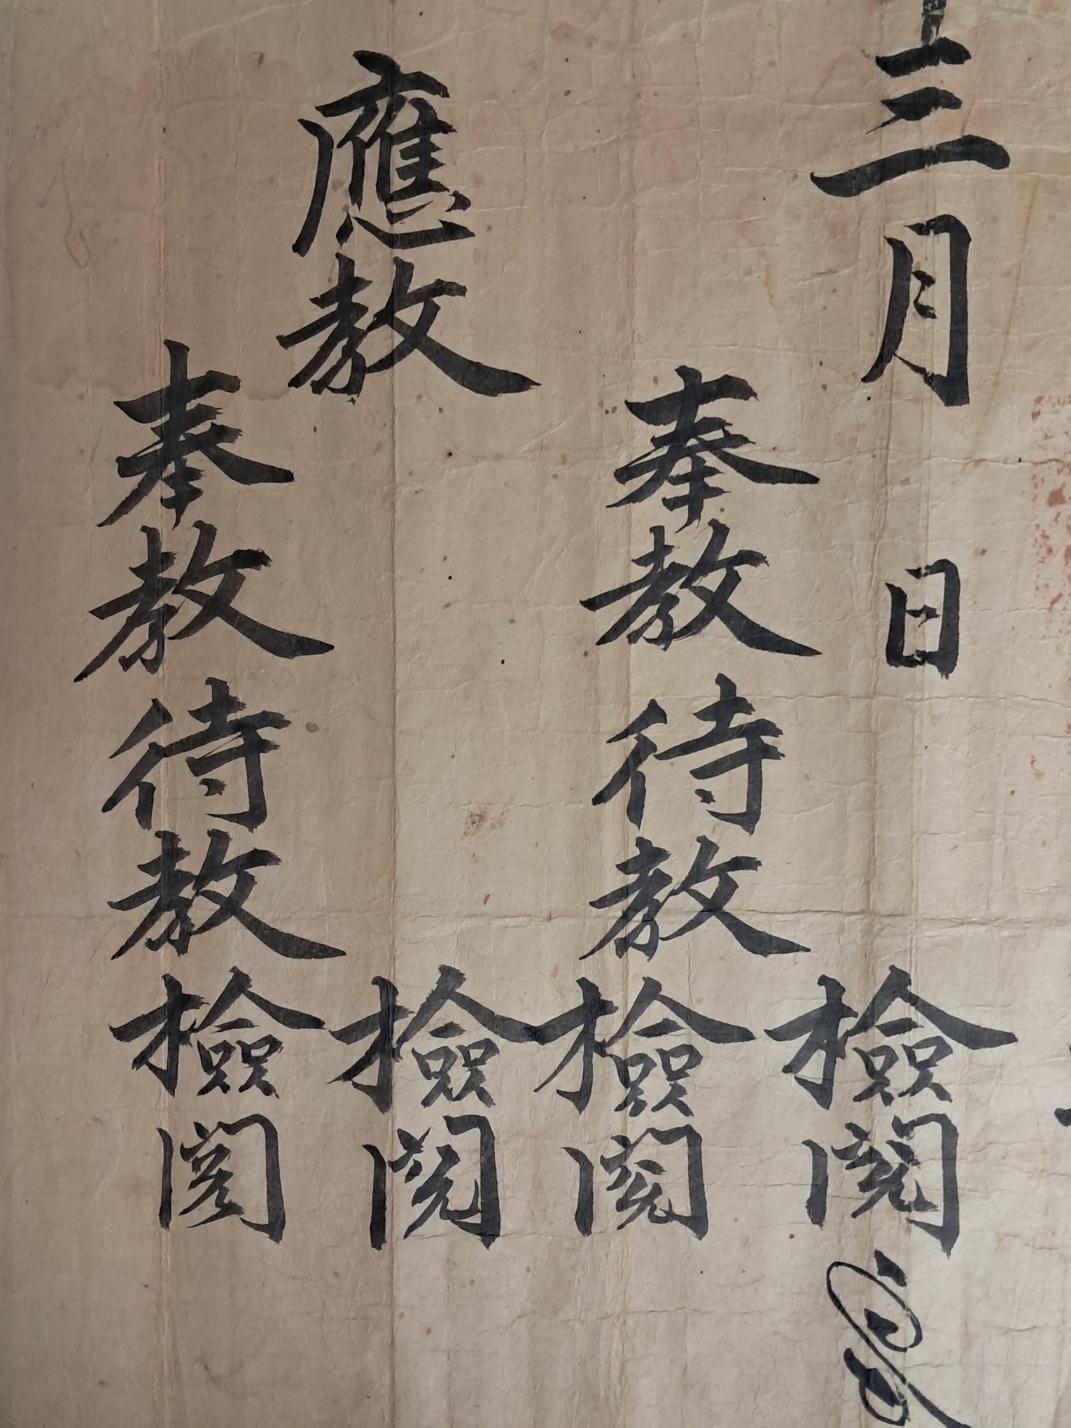 三月 日 檢閱
奉教待教檢閱
應教 檢閱
奉教待教檢閱